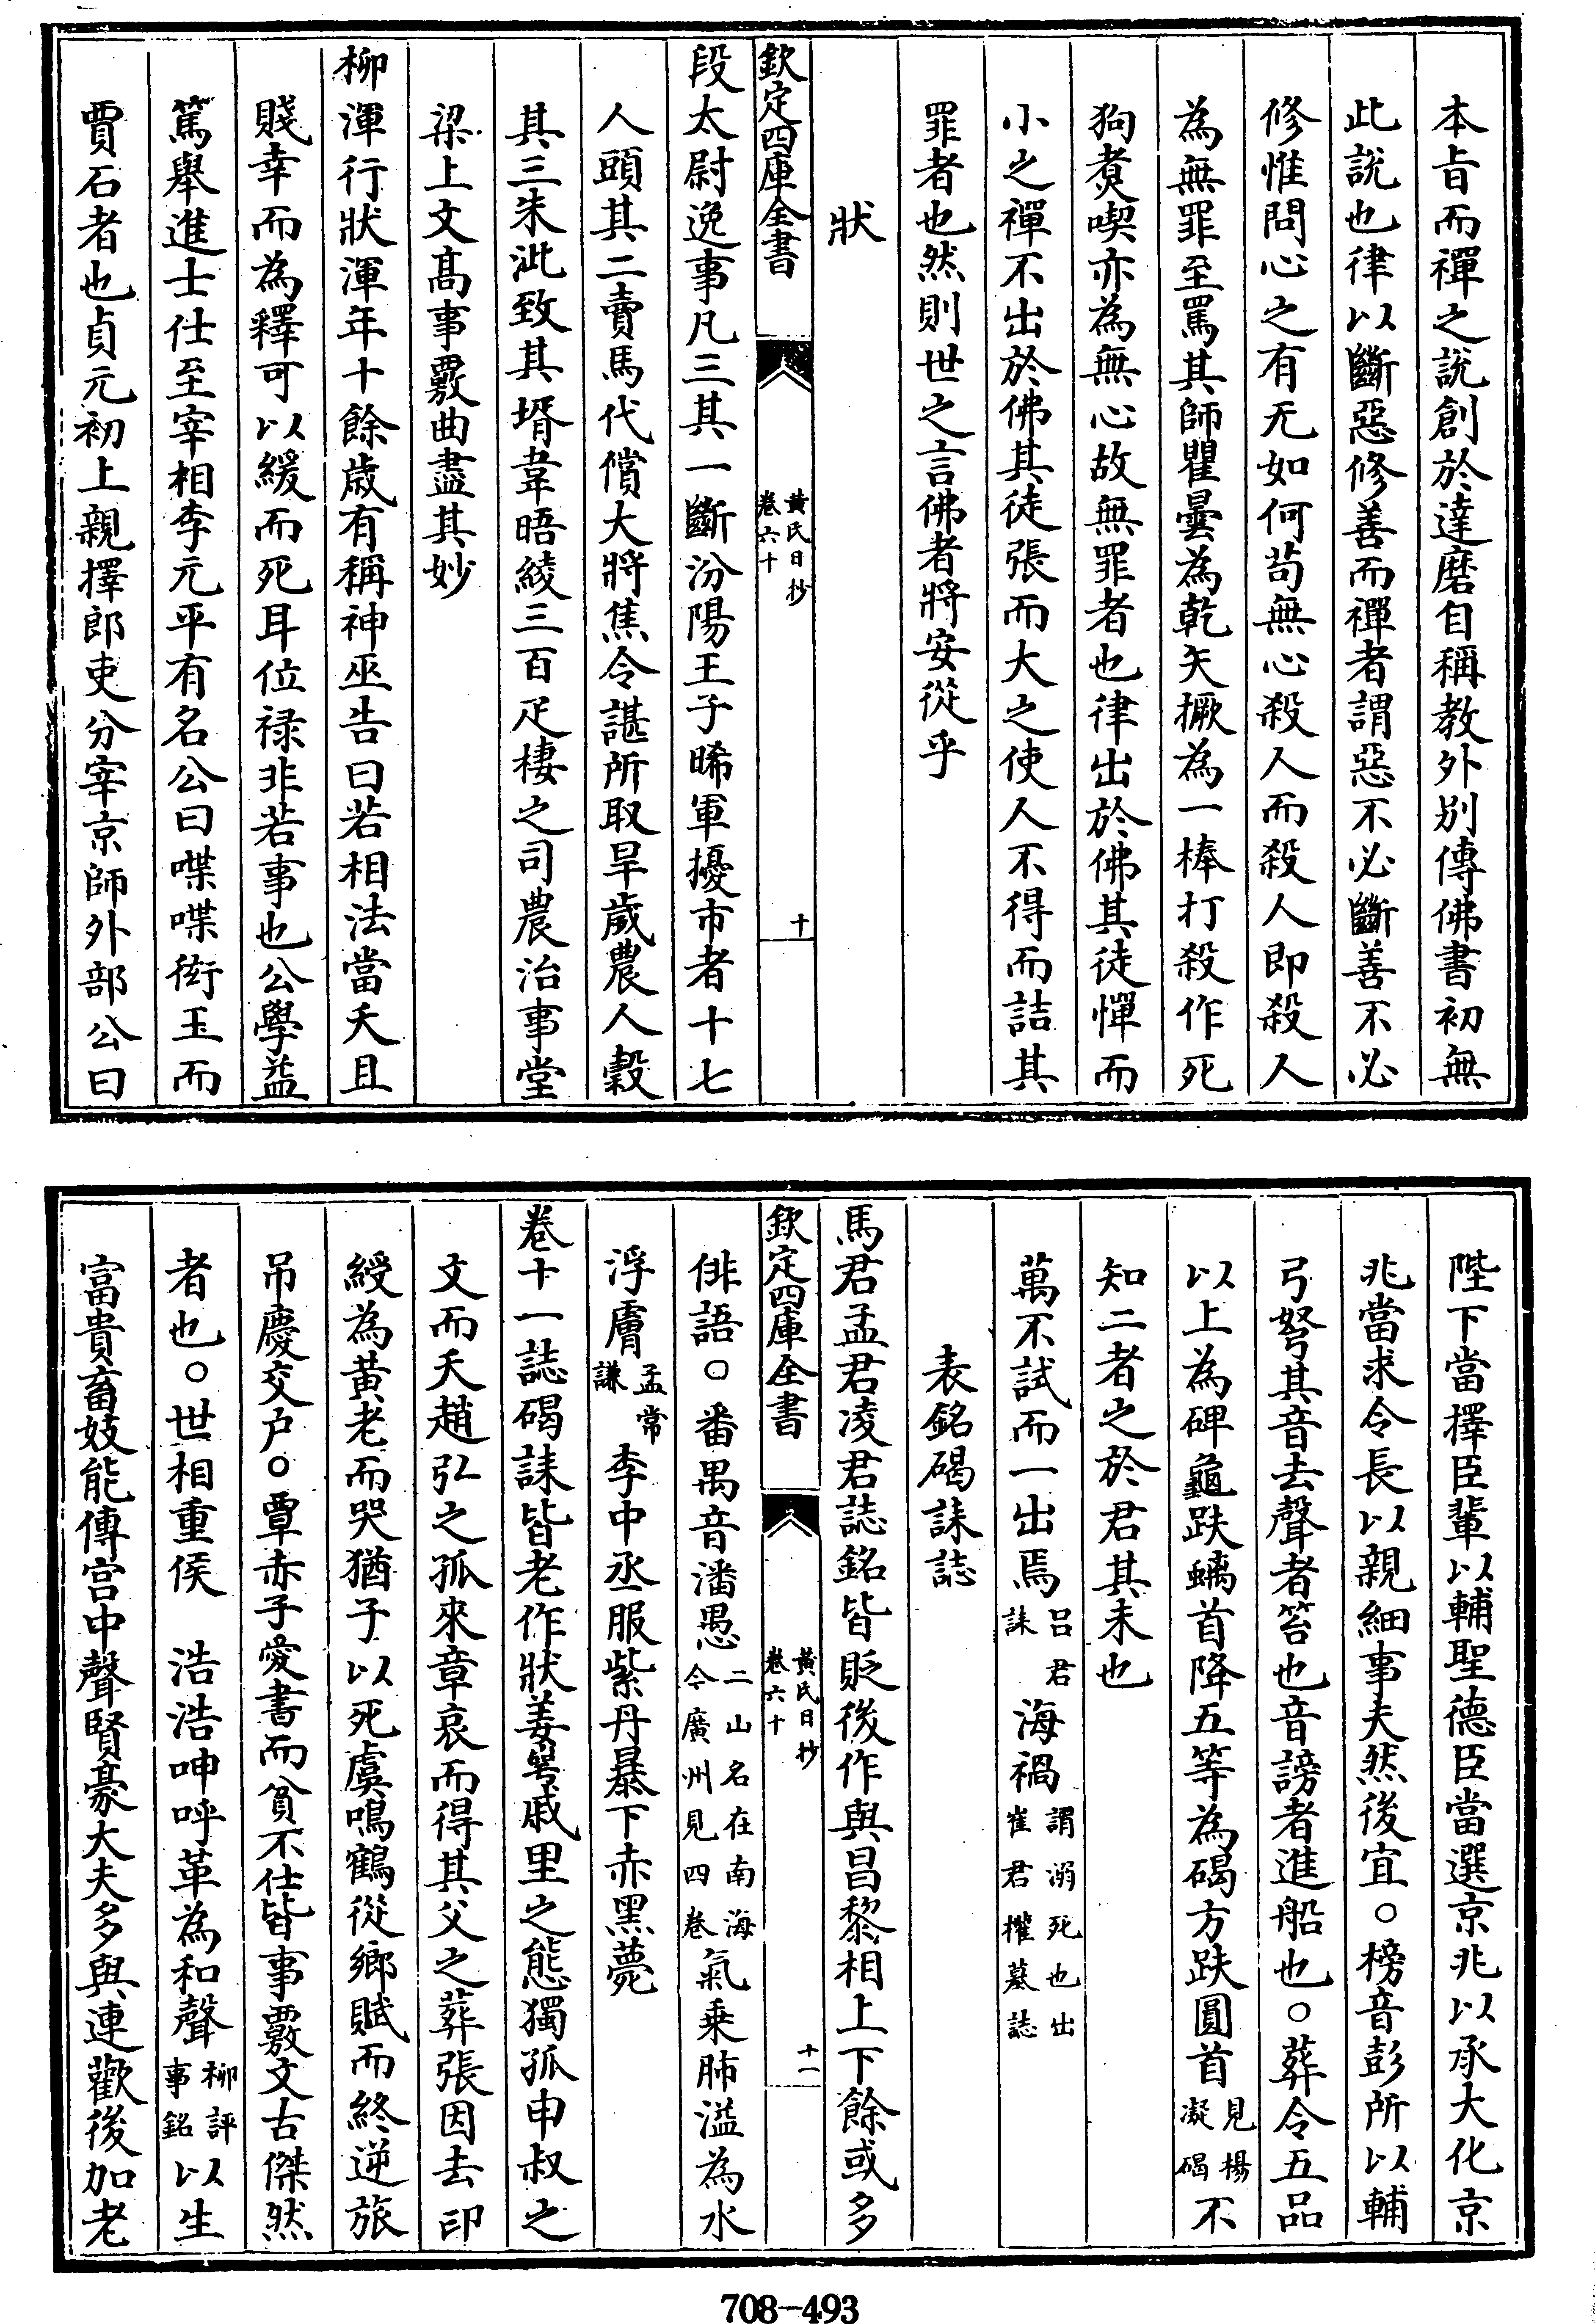 本旨而禪之說創於達磨自稱教外別傳佛書初無
此說也律以斷惡修善而禪者謂惡不必斷善不必
修惟問心之有无如何苟無心殺人而殺人即殺人
為無罪至罵其師瞿曇為乾矢撅為一棒打殺作死
狗煑喫亦為無心故無罪者也律出於佛其徒憚而
小之禪不出於佛其徒張而大之使人不得而詰其
罪者也然則世之言佛者將安從乎
狀
欽定四庫全書
黃氏日抄
卷六十
十
段太尉逸事凡三其一斷汾陽王子晞軍擾市者十七
人頭其二賣馬代償大將焦令諶所取旱歲農人穀
其三朱泚致其壻韋晤綾三百疋棲之司農治事堂
梁上文髙事覈曲盡其妙
柳渾行狀渾年十餘歲有稱神巫告曰若相法當夭且
賤幸而為釋可以緩而死耳位祿非若事也公學益
篤舉進士仕至宰相李元平有名公曰喋喋衒玉而
賈石者也貞元初上親擇郎吏分宰京師外部公曰
陛下當擇臣輩以輔聖德臣當選京兆以承大化京
兆當求令長以親細事夫然後宜○榜音彭所以輔
弓弩其音去聲者笞也音謗者進船也○葬令五品
以上為碑龜趺螭首降五等為碣方趺圓首見楊凝碣不
知二者之於君其未也
萬不試而一出焉呂君誄海禍謂溺死也出崔君㩲墓誌
表銘碣誄誌
馬君孟君凌君誌銘皆貶後作與昌黎相上下餘或多
欽定四庫全書
黃氏日抄
卷六十
十一
俳語○番禺音潘愚二山名在南海今廣州見四卷氣乗肺溢為水
浮膚孟常謙李中丞服紫丹暴下赤黑薨
卷十一誌碣誄皆老作狀姜㟧戚里之態獨孤申叔之
文而夭趙弘之孤來章哀而得其父之葬張因去印
綬為黃老而哭猶子以死虞鳴鶴從鄉賦而終逆旅
吊慶交户○覃赤子愛書而貧不仕皆事覈文古傑然
者也○世相重侯 浩浩呻呼革為和聲柳評事銘以生
富貴畜妓能傳宫中聲賢豪大夫多與連歡後加老
708-493